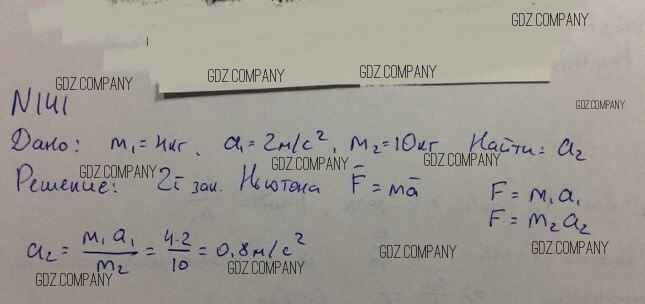 GDZ.COMPANY
GDZ.COMPANY GDZ.COMPANY GDZ.COMPANY
N141 GDZ.COMPANY
Дано: m₁ = 4кг. a₁ = 2м/с², m₂ = 10кг Найти: a₂
GDZ.COMPANY GDZ.COMPANY GDZ.COMPANY
Решение: 2й зак. Ньютона F̄ = mā F = m₁a₁
F = m₂a₂
a₂ = m₁a₁/m₂ = 4·2/10 = 0,8м/с²
GDZ.COMPANY GDZ.COMPANY GDZ.COMPANY GDZ.COMPANY